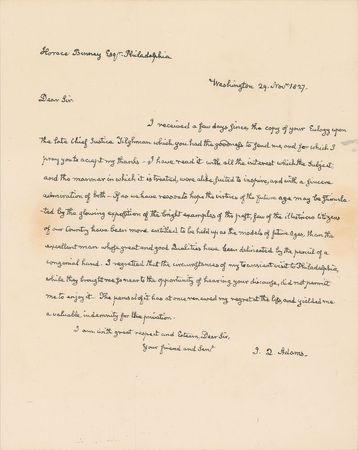 Horace Binney Esqr. Philadelphia
Washington 29. Novr 1827.
Dear Sir.
I received a few days since, the copy of your Eulogy upon
the late Chief Justice Tilghman which you had the goodness to send me, and for which I
pray you to accept my thanks – I have read it with all the interest which the subject
and the manner in which it is treated, were alike suited to inspire, and with a sincere
admiration of both – If as we have reason to hope the virtues of the future age may be stimula-
ted by the glowing exposition of the bright examples of the past, few of the illustrious citizens
of our Country have been more entitled to be held up as the models of future Ages, than the
excellent man whose great and good Qualities have been delineated by the pencil of a
congenial hand. I regretted that the circumstances of my transient visit to Philadelphia,
while they brought me so near to the opportunity of hearing your discourse, did not permit
me to enjoy it. The perusal of it has at once renewed my regret at the loss, and yielded me
a valuable indemnity for the privation.
I am with great respect and Esteem, Dear Sir,
Your friend and Servt
J. Q. Adams.